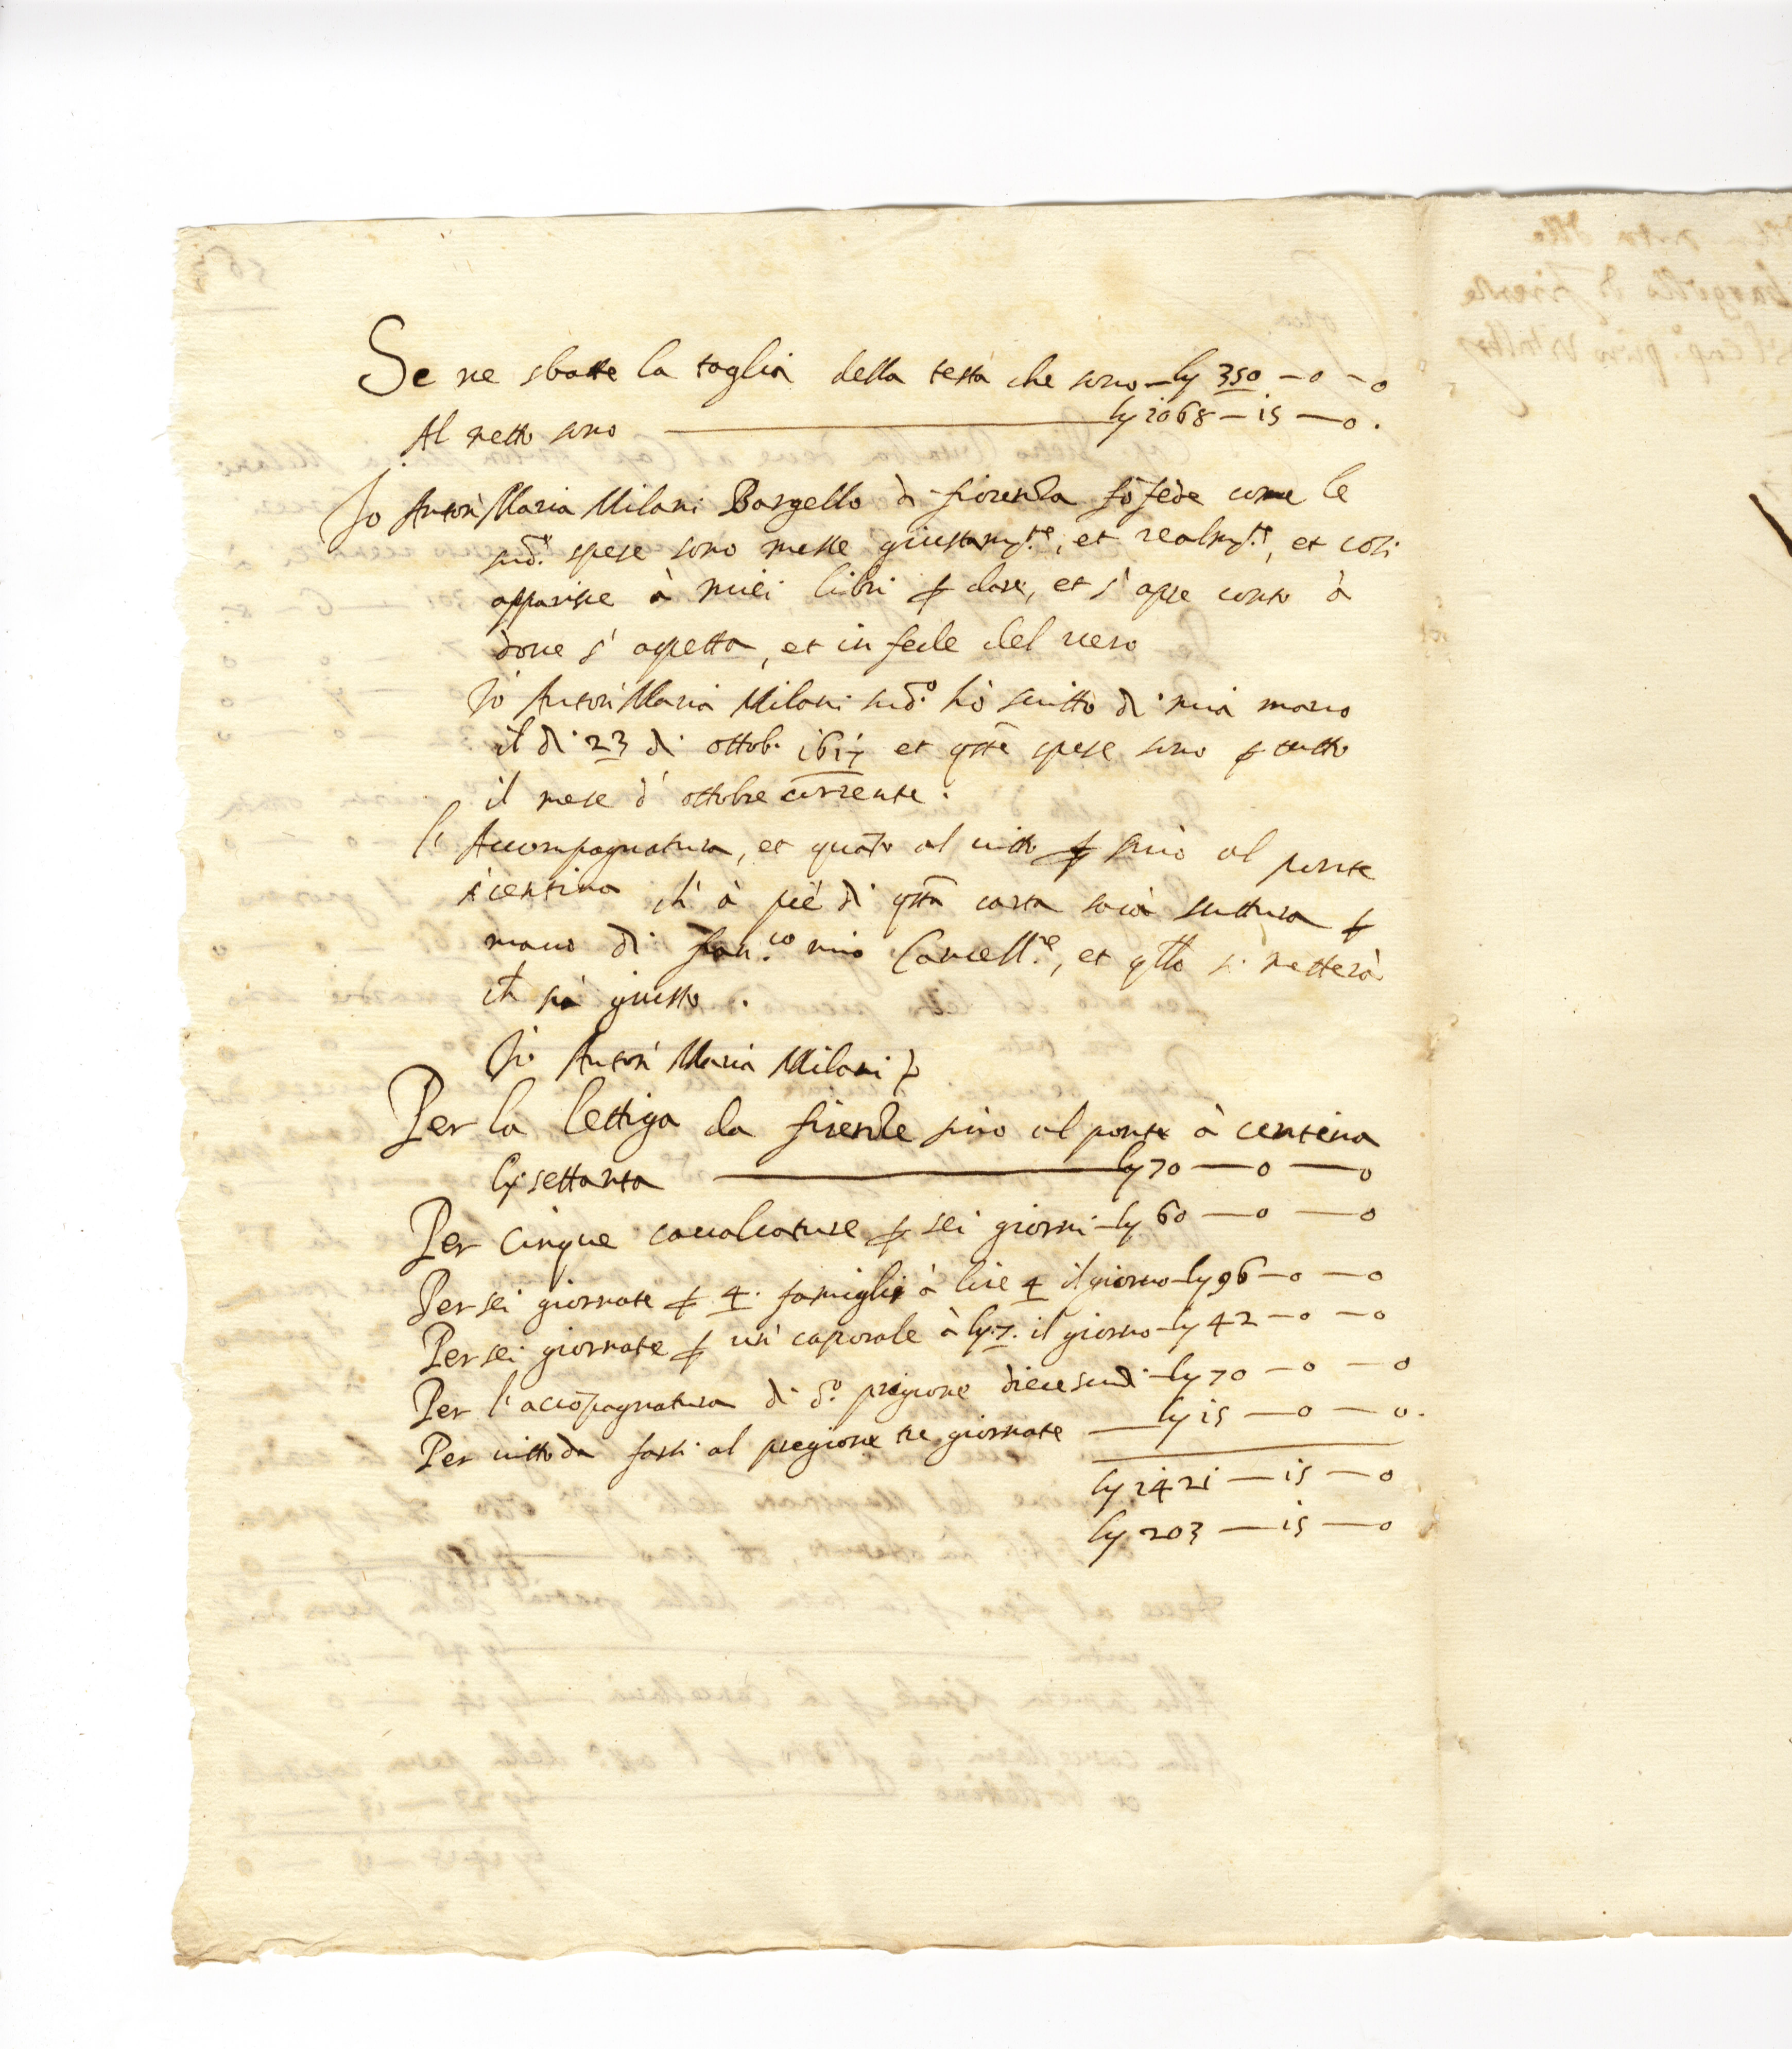 Se ne sbatte la taglia della testa che sono — ly 350 — 0 — 0
Al netto sono — ly 1068 — 15 — 0.
Io Anton Maria Milani Bargello di fiorenza fo fede come le
sud.e spese sono messe giustam.te, et realm.te, et così
apparisce à miei libri dare, et s' apre conto à
doue s' aspetta, et in fede del uero
Io Anton Maria Milani sud.o hò scritto di mia mano
il di 23 di ottob. 1617 et q̃ste spese sono p tutto
il mese d' ottobre corrente.
l' Accompagnatura, et quãto al uitto p sino al ponte
à centina ch' à piè di q̃sta carta sarà scrittura p
mano di fran.co mio Cancell.re, et q̃llo si metterà
ch̃ sia giusto.
Io Anton Maria Milani
Per la lettiga da firenze sino al ponte à centina
ly settanta — ly 70 — 0 — 0
Per cinque caualcature p sei giorni — ly 60 — 0 — 0
Per sei giornate p 4. famigli à lire 4 il giorno — ly 96 — 0 — 0
Per sei giornate p un' caporale à ly. 7. il giorno — ly 42 — 0 — 0
Per l' accõpagnatura di d.o prigione diece scudi — ly 70 — 0 — 0
Per uitto da farsi al pregione tre giornate — ly 15 — 0 — 0.
ly 1421 — 15 — 0
ly 203 — 15 — 0